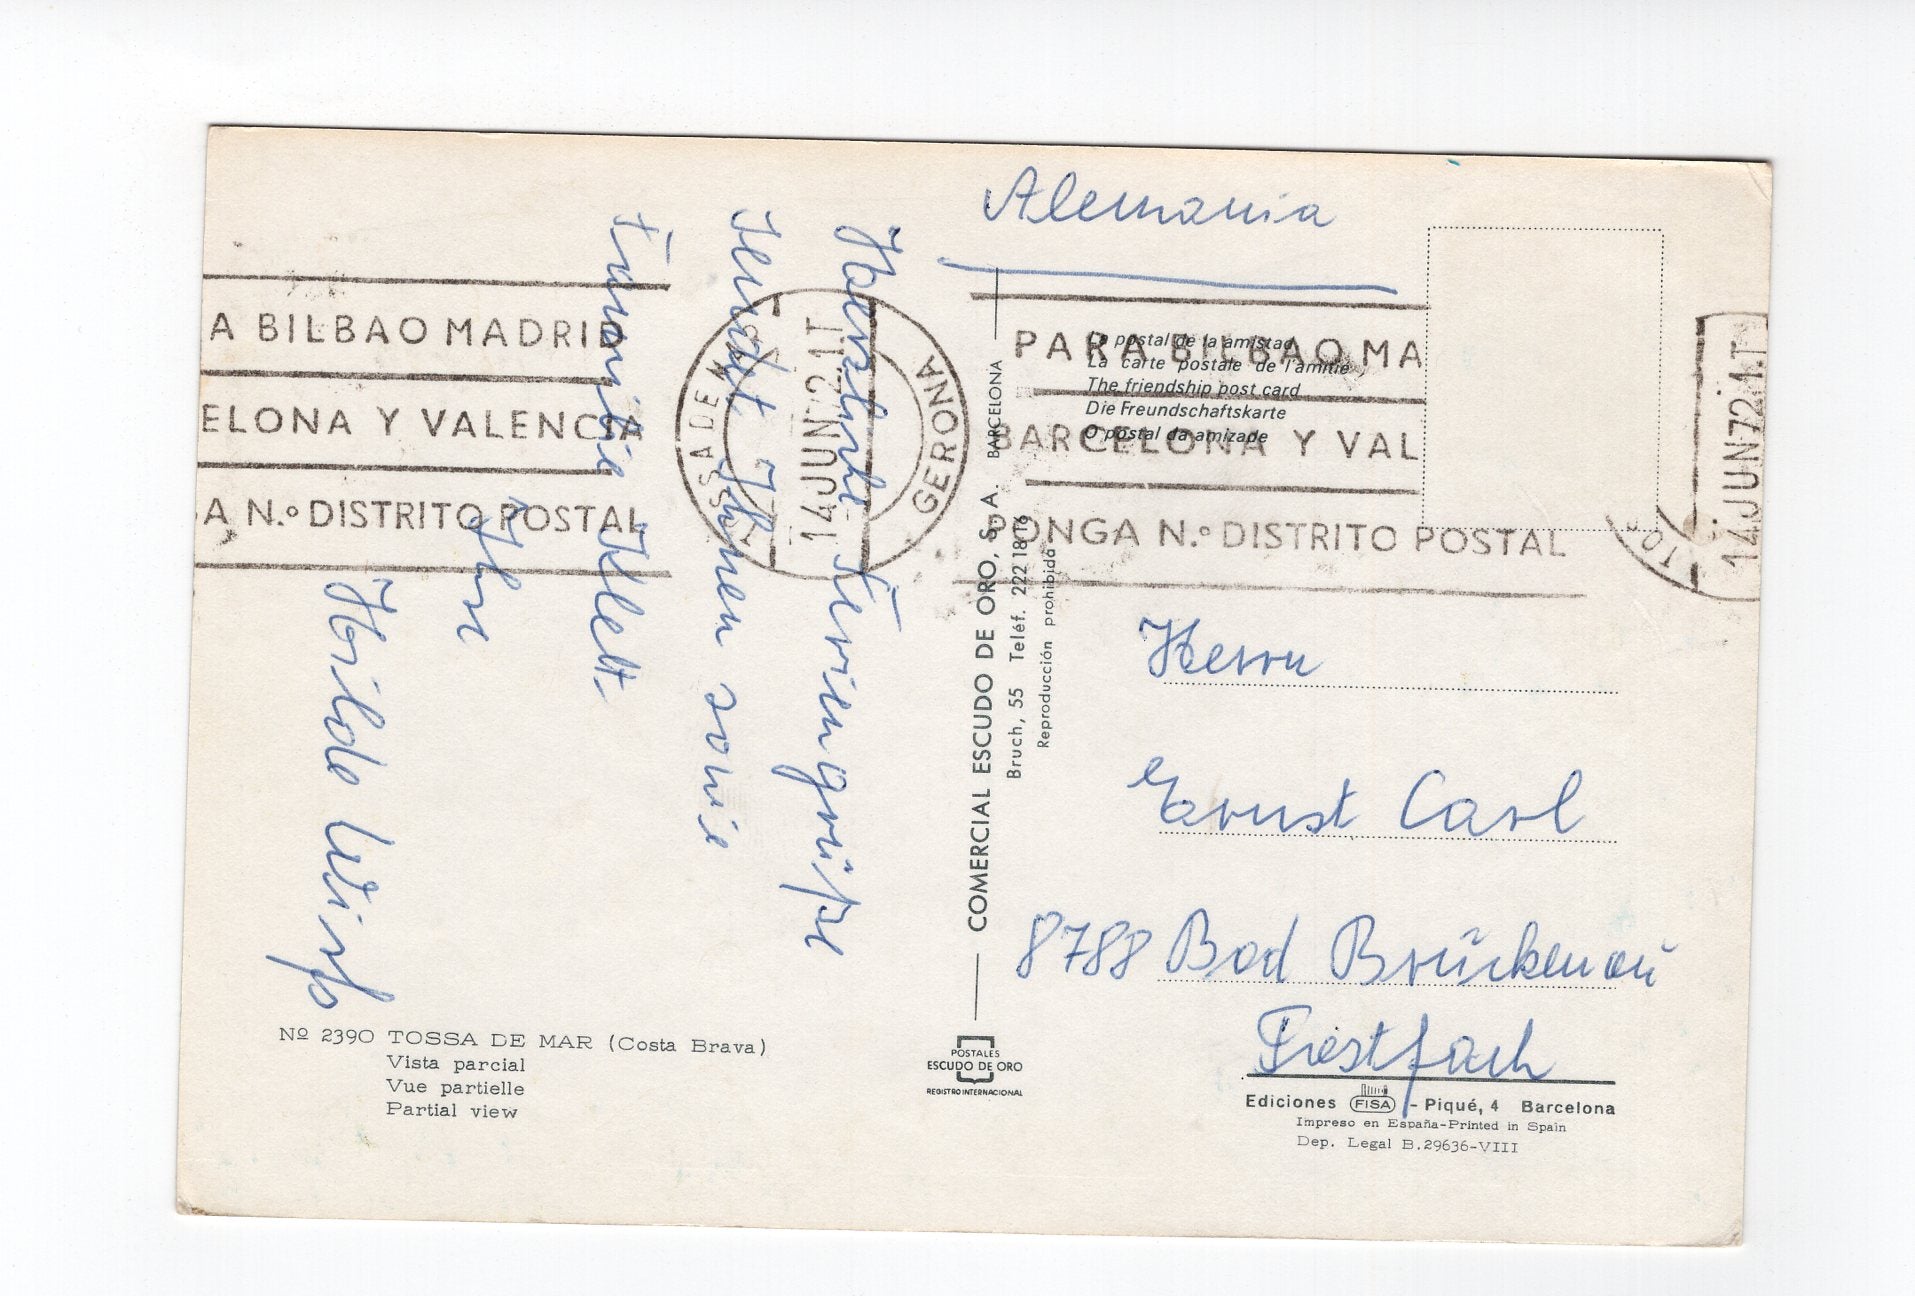 Alemania
A BILBAO MADRID
ELONA Y VALENCIA
A N.º DISTRITO POSTAL
TOSSA DE MAR
14 JUN 72 1T
GERONA
PARA BILBAO MA
BARCELONA Y VAL
PONGA N.º DISTRITO POSTAL
TOS
14 JUN 72 1T
La postal de la amistad
La carte postale de l'amitié
The friendship post card
Die Freundschaftskarte
O postal da amizade
Herzliche Feriengrüße
sendet Ihnen sowie
Familie Klett
Ihre
Hilde Wirß
COMERCIAL ESCUDO DE ORO, S. A. BARCELONA
Bruch, 55 Teléf. 222 18 16
Reproducción prohibida
Herrn
Ernst Carl
8788 Bad Brückenau
Postfach
Nº 2390 TOSSA DE MAR (Costa Brava)
Vista parcial
Vue partielle
Partial view
POSTALES
ESCUDO DE ORO
REGISTRO INTERNACIONAL
Ediciones FISA - Piqué, 4 Barcelona
Impreso en España-Printed in Spain
Dep. Legal B.29636-VIII